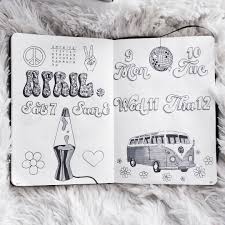 APRIL
Sat 7 Sun 8
9 Mon
10 Tue
Wed 11 Thu 12